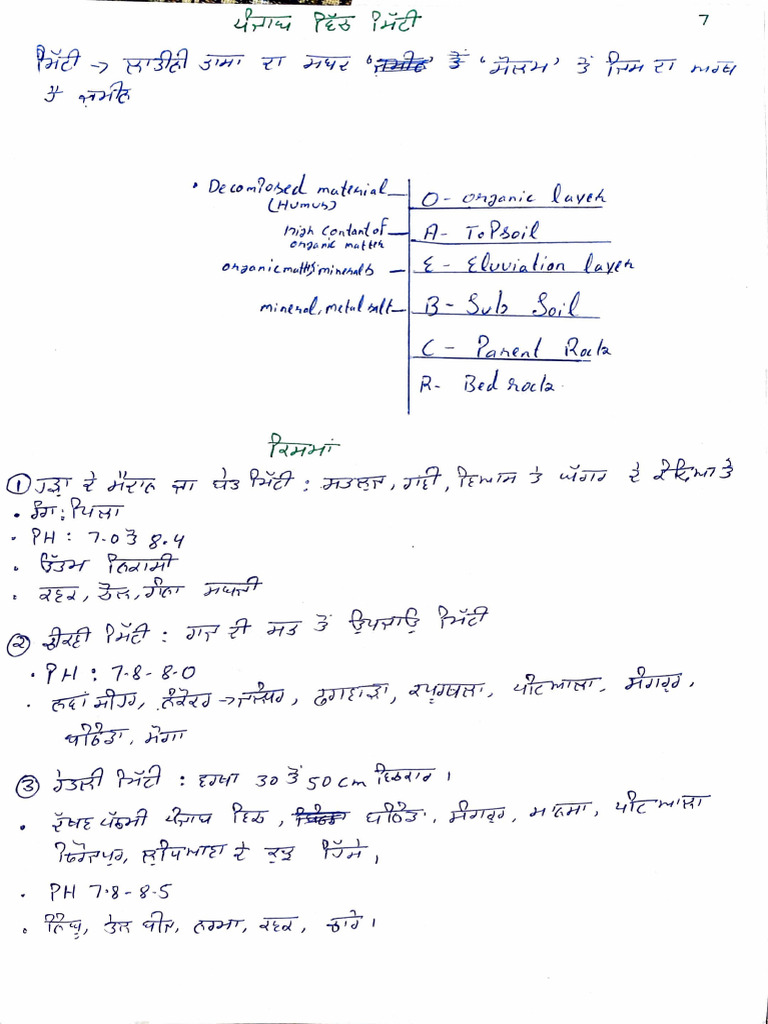 ਪੰਜਾਬ ਵਿੱਚ ਮਿੱਟੀ
7
ਮਿੱਟੀ → ਲਾਤੀਨੀ ਭਾਸ਼ਾ ਦਾ ਸ਼ਬਦ ਤੋਂ 'ਸੋਲਮ' ਤੋਂ ਜਿਸ ਦਾ ਅਰਥ
ਹੈ ਜ਼ਮੀਨ
• Decomposed material (Humus) O - organic layer
High contant of organic matter A - ToPsoil
organic matter, minerals E - Eluviation layer
mineral, metal salt B - Sub Soil
C - Parent Rock
R - Bed rock.
ਕਿਸਮਾਂ
① ਹੜ੍ਹਾਂ ਦੇ ਮੈਦਾਨ ਜਾਂ ਬੇਟ ਮਿੱਟੀ : ਸਤਲੁਜ, ਰਾਵੀ, ਬਿਆਸ ਤੇ ਘੱਗਰ ਦੇ ਕੰਢਿਆਂ ਤੇ
• ਰੰਗ : ਪਿਲਾ
• PH : 7.0 ਤੋਂ 8.4
• ਉੱਤਮ ਨਿਕਾਸੀ
• ਕਣਕ, ਚੌਲ, ਗੰਨਾ ਸਬਜੀ
② ਚੀਕਣੀ ਮਿੱਟੀ : ਦੀ ਸਭ ਤੋਂ ਉਪਜਾਊ ਮਿੱਟੀ
• PH : 7.8 - 8.0
• ਨਵਾਂ ਸ਼ਹਿਰ, ਨਕੋਦਰ → ਜਲੰਧਰ, ਫਗਵਾੜਾ, ਕਪੂਰਥਲਾ, ਪਟਿਆਲਾ, ਸੰਗਰੂਰ,
ਬਠਿੰਡਾ, ਮੋਗਾ
③ ਰੇਤਲੀ ਮਿੱਟੀ : ਵਰਖਾ 30 ਤੋਂ 50 cm ਵਿਚਕਾਰ।
• ਦੱਖਣ ਪੱਛਮੀ ਪੰਜਾਬ ਵਿਚ, ਬਠਿੰਡਾ, ਸੰਗਰੂਰ, ਮਾਨਸਾ, ਪਟਿਆਲਾ
ਫਿਰੋਜਪੁਰ, ਲੁਧਿਆਣਾ ਦੇ ਕੁਝ ਹਿੱਸੇ।
• PH 7.8 - 8.5
• ਨਿੰਬੂ, ਤੇਲ ਬੀਜ, ਨਰਮਾ, ਕਣਕ, ਚਾਰੇ।